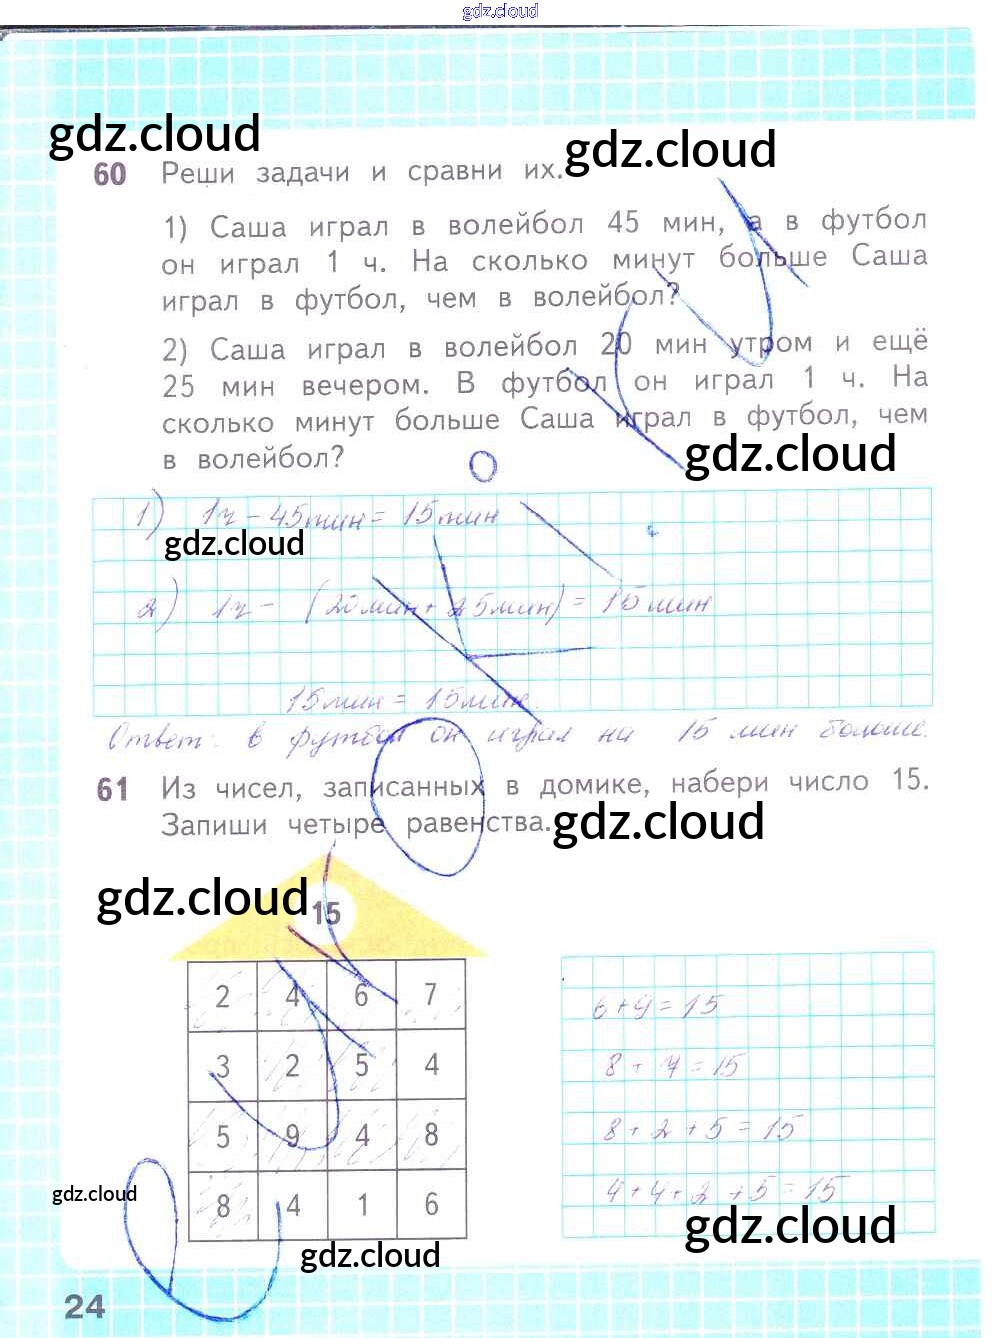 gdz.cloud
gdz.cloud
gdz.cloud
60 Реши задачи и сравни их.
1) Саша играл в волейбол 45 мин, а в футбол
он играл 1 ч. На сколько минут больше Саша
играл в футбол, чем в волейбол?
2) Саша играл в волейбол 20 мин утром и ещё
25 мин вечером. В футбол он играл 1 ч. На
сколько минут больше Саша играл в футбол, чем
в волейбол?
gdz.cloud
1) 1ч - 45мин = 15мин
gdz.cloud
2) 1ч - (20мин + 25мин) = 15 мин
15мин = 15мин.
Ответ: в футбол он играл на 15 мин больше.
61 Из чисел, записанных в домике, набери число 15.
Запиши четыре равенства.
gdz.cloud
gdz.cloud
15
2 4 6 7
3 2 5 4
5 9 4 8
8 4 1 6
6+9=15
8+7=15
8+2+5=15
4+4+2+5=15
gdz.cloud
gdz.cloud
gdz.cloud
24